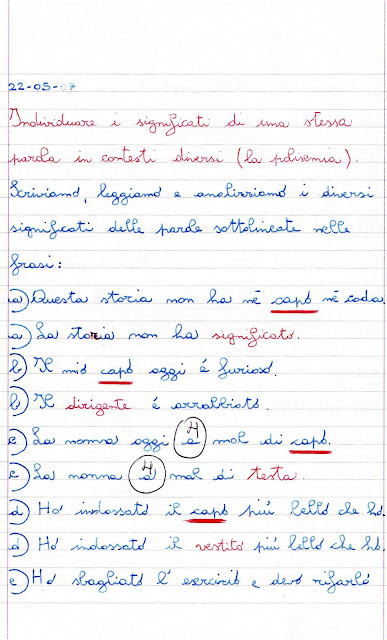 22-05-07
Individuare i significati di una stessa
parola in contesti diversi (la polisemia).
Scriviamo, leggiamo e analizziamo i diversi
significati delle parole sottolineate nelle
frasi:
a) Questa storia non ha né capo né coda.
a) La storia non ha significato.
b) Il mio capo oggi é furioso.
b) Il dirigente é arrabbiato.
c) La nonna oggi H a mal di capo.
c) La nonna H a mal di testa.
d) Ho indossato il capo piú bello che ho.
d) Ho indossato il vestito piú bello che ho.
e) Ho sbagliato l'esercizio e devo rifarlo